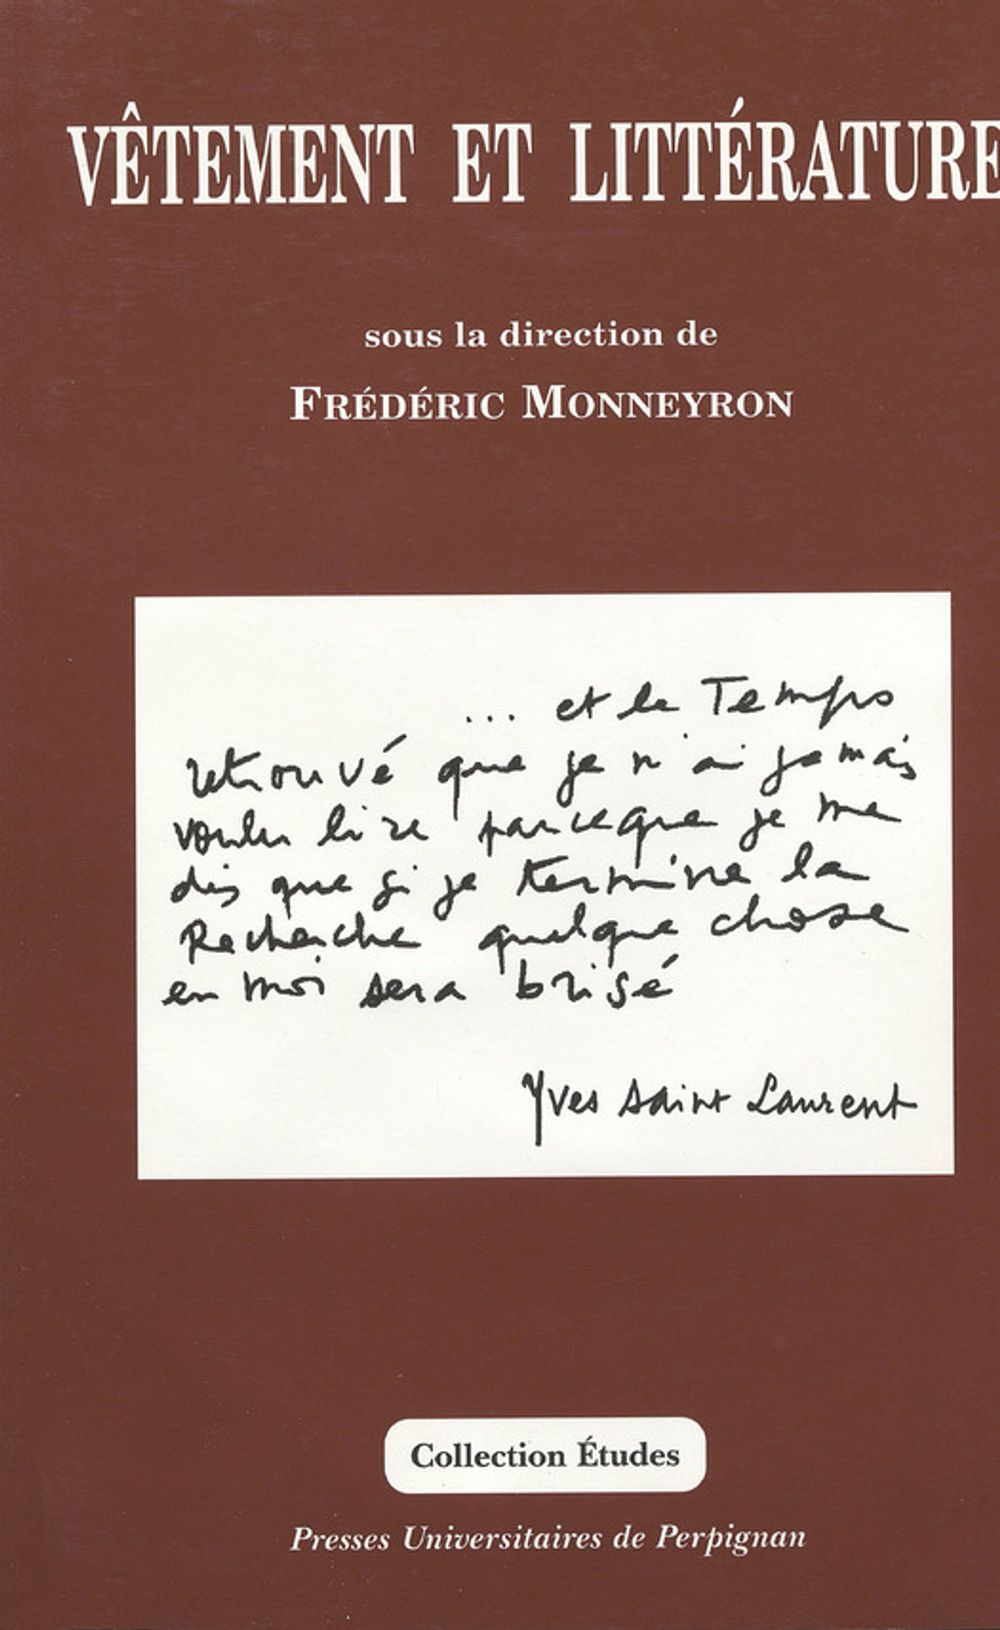 VÊTEMENT ET LITTÉRATURE
sous la direction de
FRÉDÉRIC MONNEYRON
... et le Temps
retrouvé que je n'ai jamais
voulu lire parceque je me
dis que si je termine la
Recherche quelque chose
en moi sera brisé
Yves Saint Laurent
Collection Études
Presses Universitaires de Perpignan